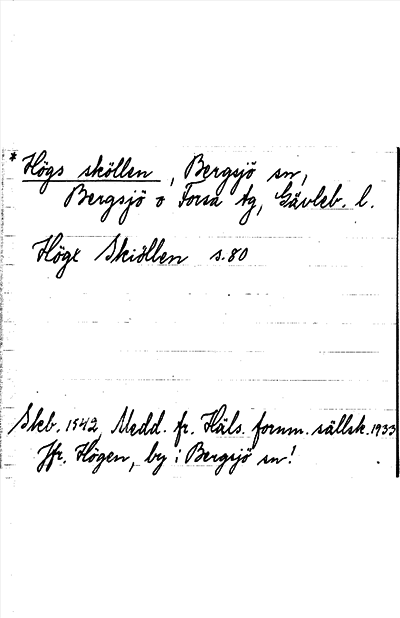 * Högs sköllen, Bergsjö sn,
Bergsjö o Forsa tg, Gävleb. l.
Högx Skiöllen s. 80
Skeb. 1542, Medd. fr. Häls. fornm. sällsk. 1933
Jfr. Högen, by i Bergsjö sn!